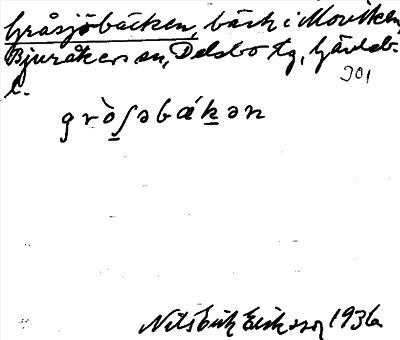 Gråsjöbäcken, bäck i Moviken,
Bjuråkers sn, Delsbo tg, Gävleb.
l. 901
grò̱ʃəbáḵən
Nils Erik Eriksson 1936